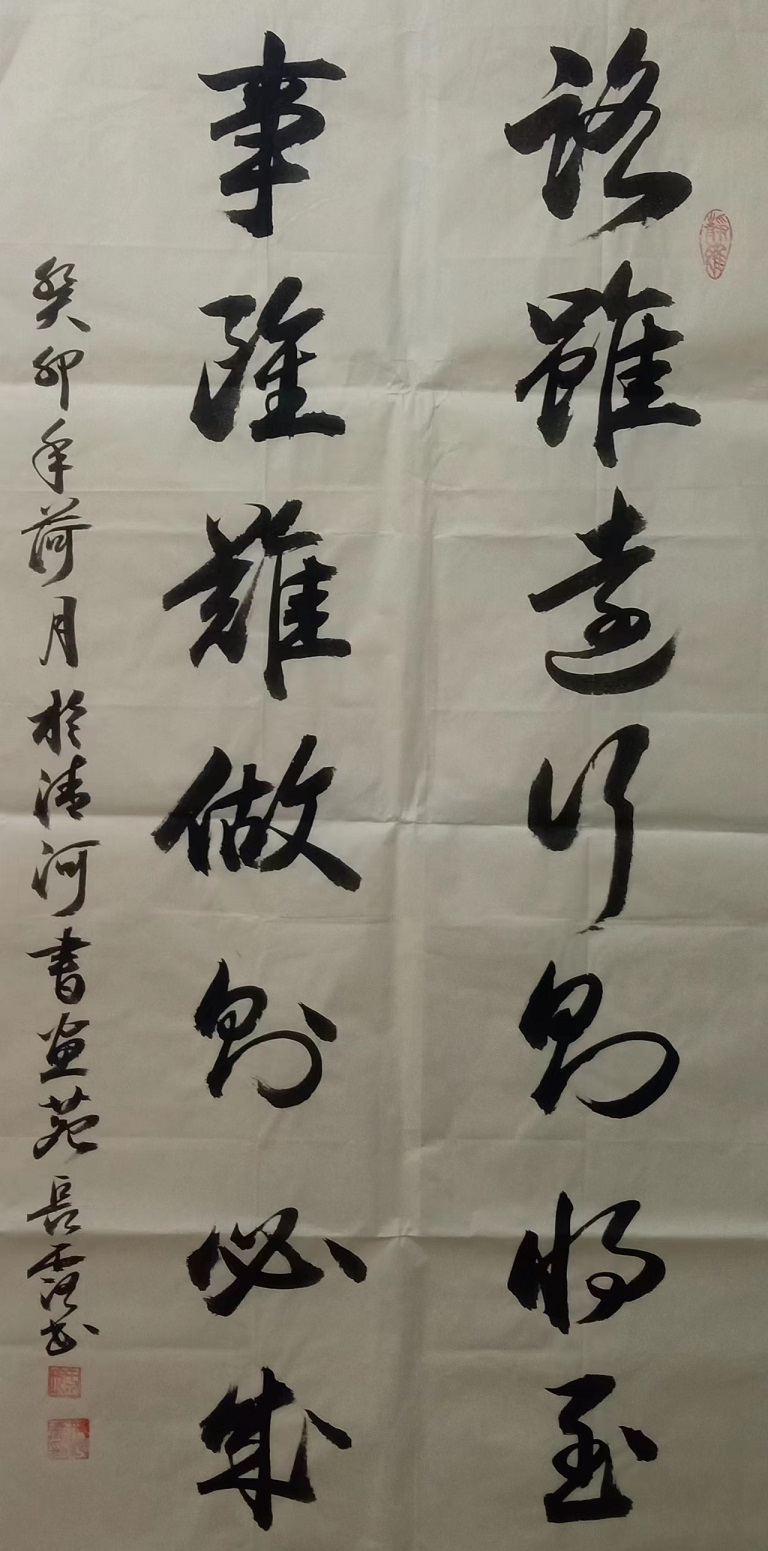 路雖遠行則將至
事雖難做則必成
癸卯年荷月於清河書畫苑長霞书